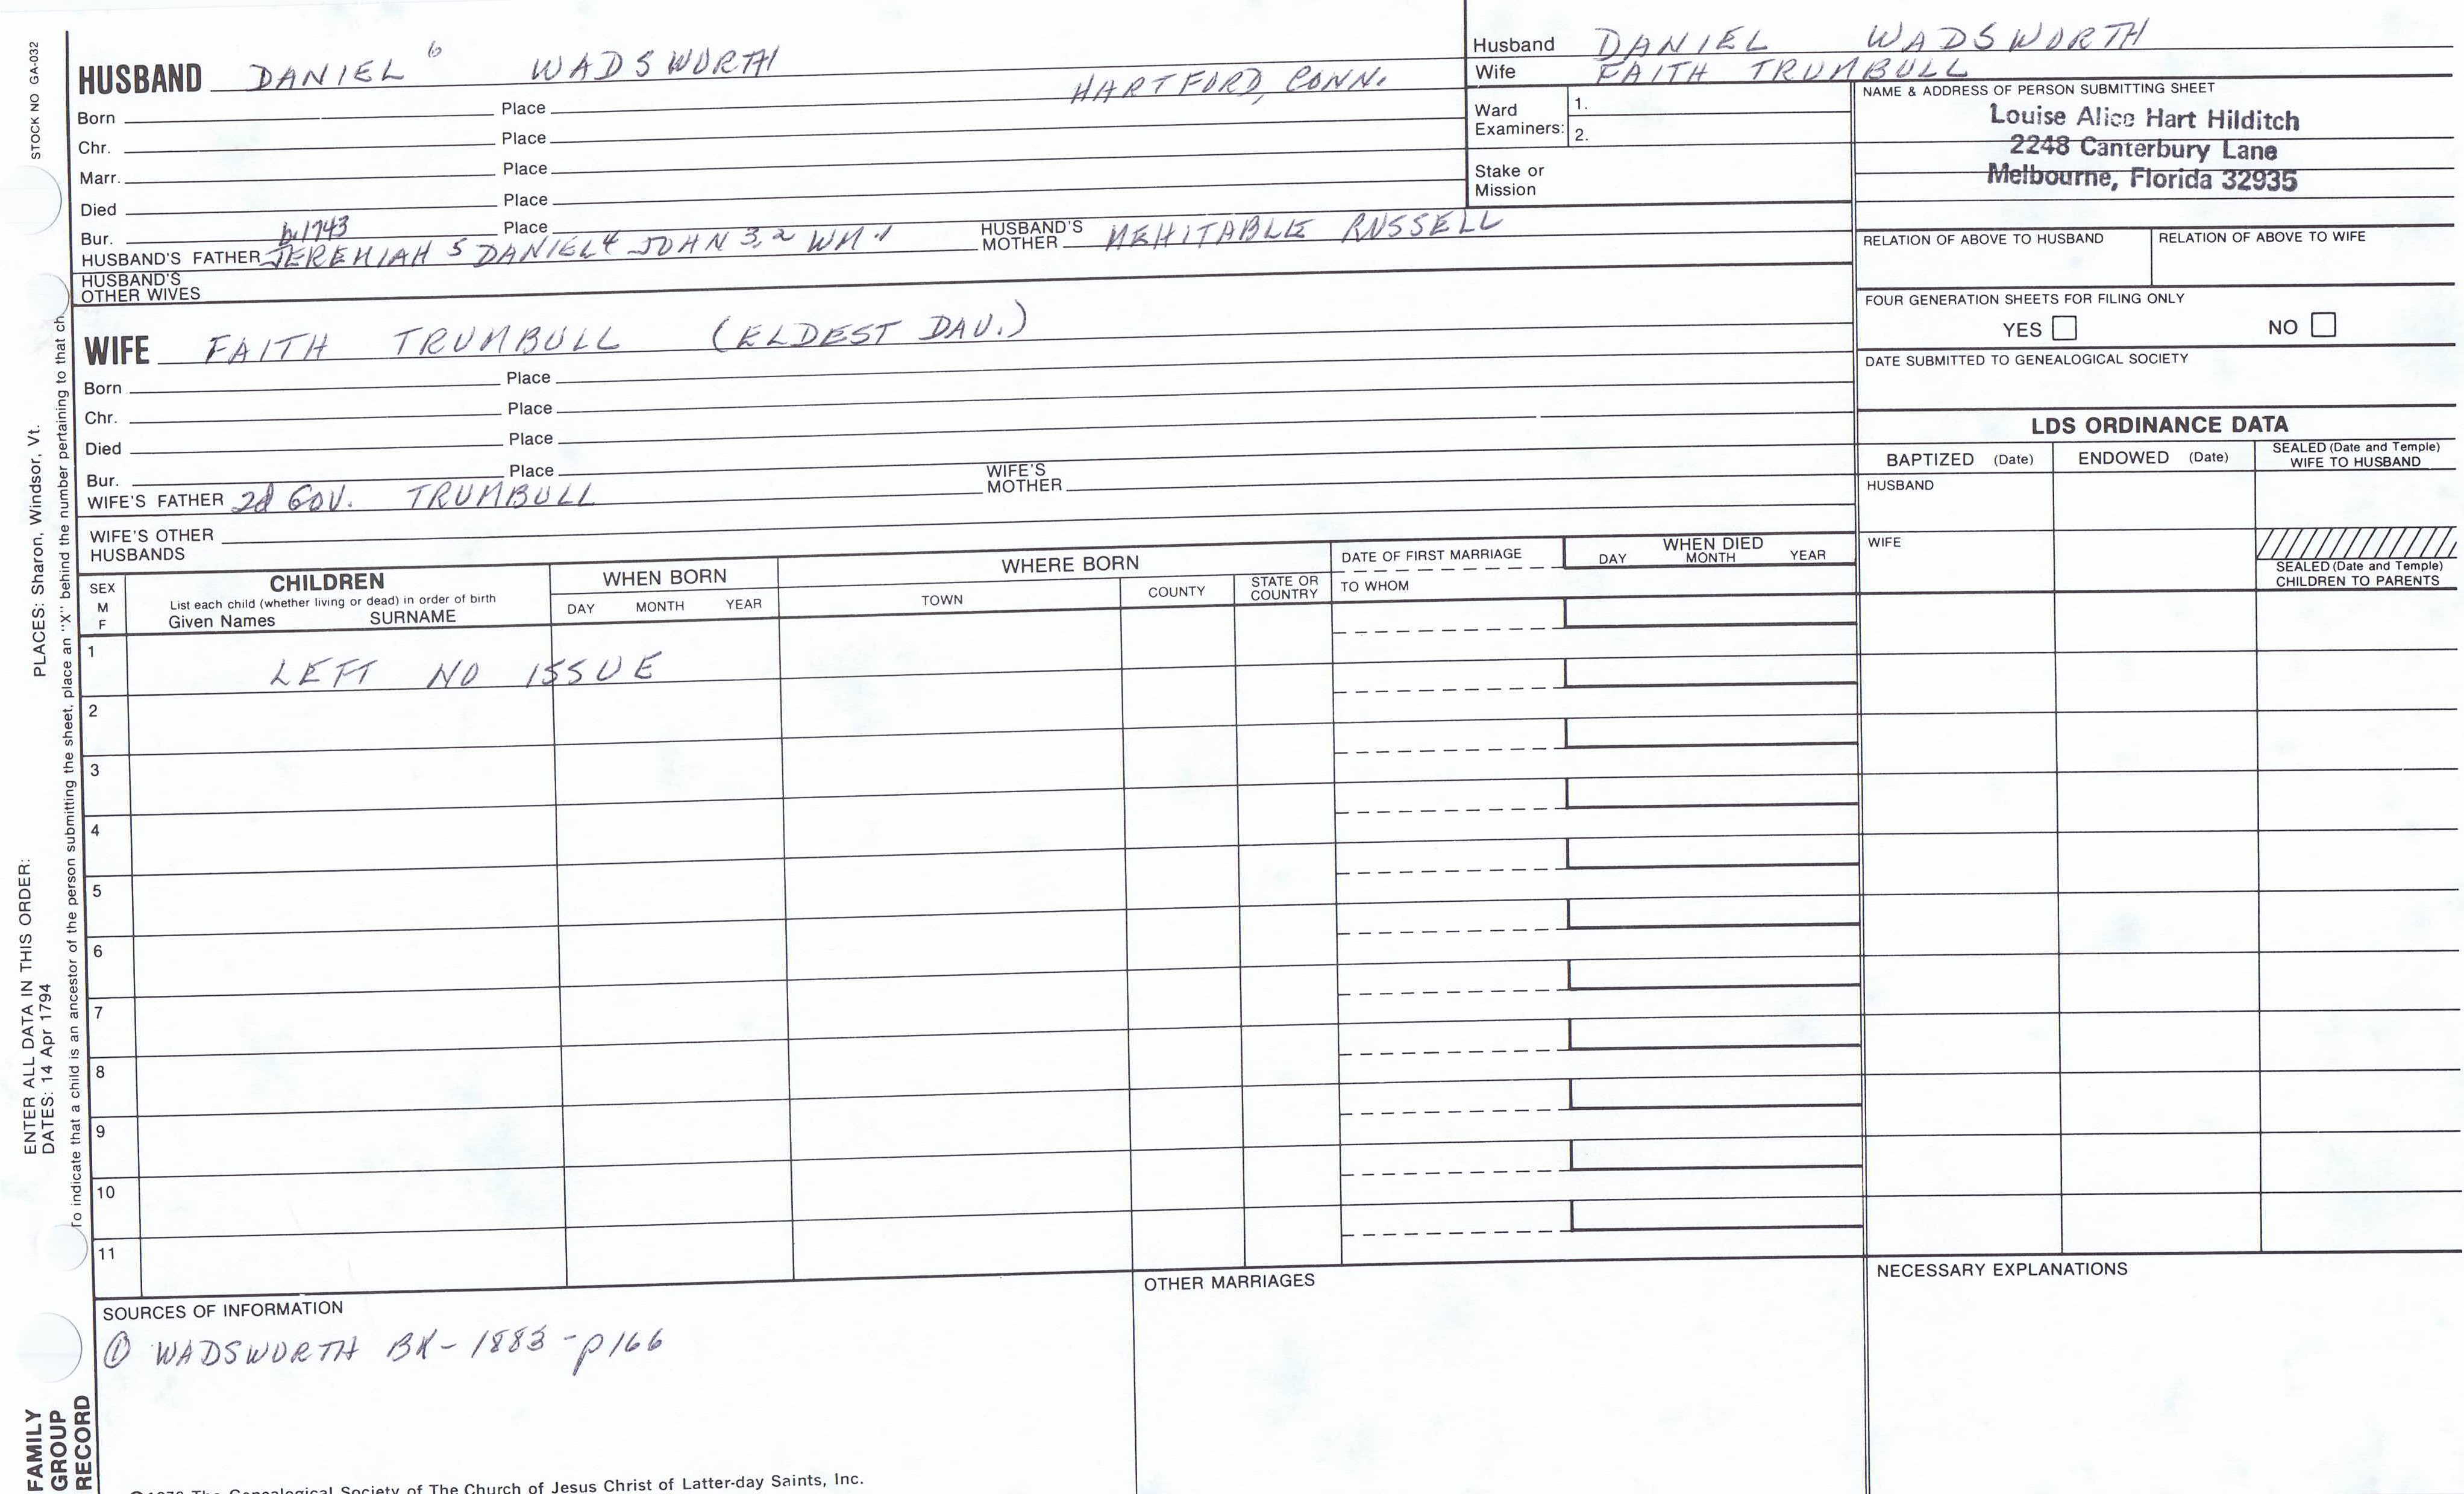 STOCK NO GA-032
PLACES: Sharon, Windsor, Vt.
ENTER ALL DATA IN THIS ORDER:
DATES: 14 Apr 1794
To indicate that a child is an ancestor of the person submitting the sheet, place an "X" behind the number pertaining to that ch
FAMILY
GROUP
RECORD
HUSBAND DANIEL 6 WADSWORTH
Born Place HARTFORD, CONN.
Chr. Place
Marr. Place
Died Place
Bur. Place
b 1743
HUSBAND'S FATHER JEREMIAH 5 DANIEL 4 JOHN 3,2 WM 1 HUSBAND'S MOTHER MEHITABLE RUSSELL
HUSBAND'S
OTHER WIVES
WIFE FAITH TRUMBULL (ELDEST DAU.)
Born Place
Chr. Place
Died Place
Bur. Place
WIFE'S FATHER 2d GOV. TRUMBULL WIFE'S MOTHER
WIFE'S OTHER
HUSBANDS
Husband DANIEL WADSWORTH
Wife FAITH TRUMBULL
Ward
Examiners:
1.
2.
Stake or
Mission
NAME & ADDRESS OF PERSON SUBMITTING SHEET
Louise Alice Hart Hilditch
2248 Canterbury Lane
Melbourne, Florida 32935
RELATION OF ABOVE TO HUSBAND RELATION OF ABOVE TO WIFE
FOUR GENERATION SHEETS FOR FILING ONLY
YES NO
DATE SUBMITTED TO GENEALOGICAL SOCIETY
LDS ORDINANCE DATA
BAPTIZED (Date) ENDOWED (Date) SEALED (Date and Temple)
WIFE TO HUSBAND
HUSBAND
WIFE
SEALED (Date and Temple)
CHILDREN TO PARENTS
SEX
M
F
CHILDREN
List each child (whether living or dead) in order of birth
Given Names SURNAME
WHEN BORN
DAY MONTH YEAR
WHERE BORN
TOWN COUNTY STATE OR
COUNTRY
DATE OF FIRST MARRIAGE
TO WHOM
WHEN DIED
DAY MONTH YEAR
1 LEFT NO ISSUE
2
3
4
5
6
7
8
9
10
11
SOURCES OF INFORMATION
① WADSWORTH BK - 1883 - p166
OTHER MARRIAGES
NECESSARY EXPLANATIONS
The Genealogical Society of The Church of Jesus Christ of Latter-day Saints, Inc.